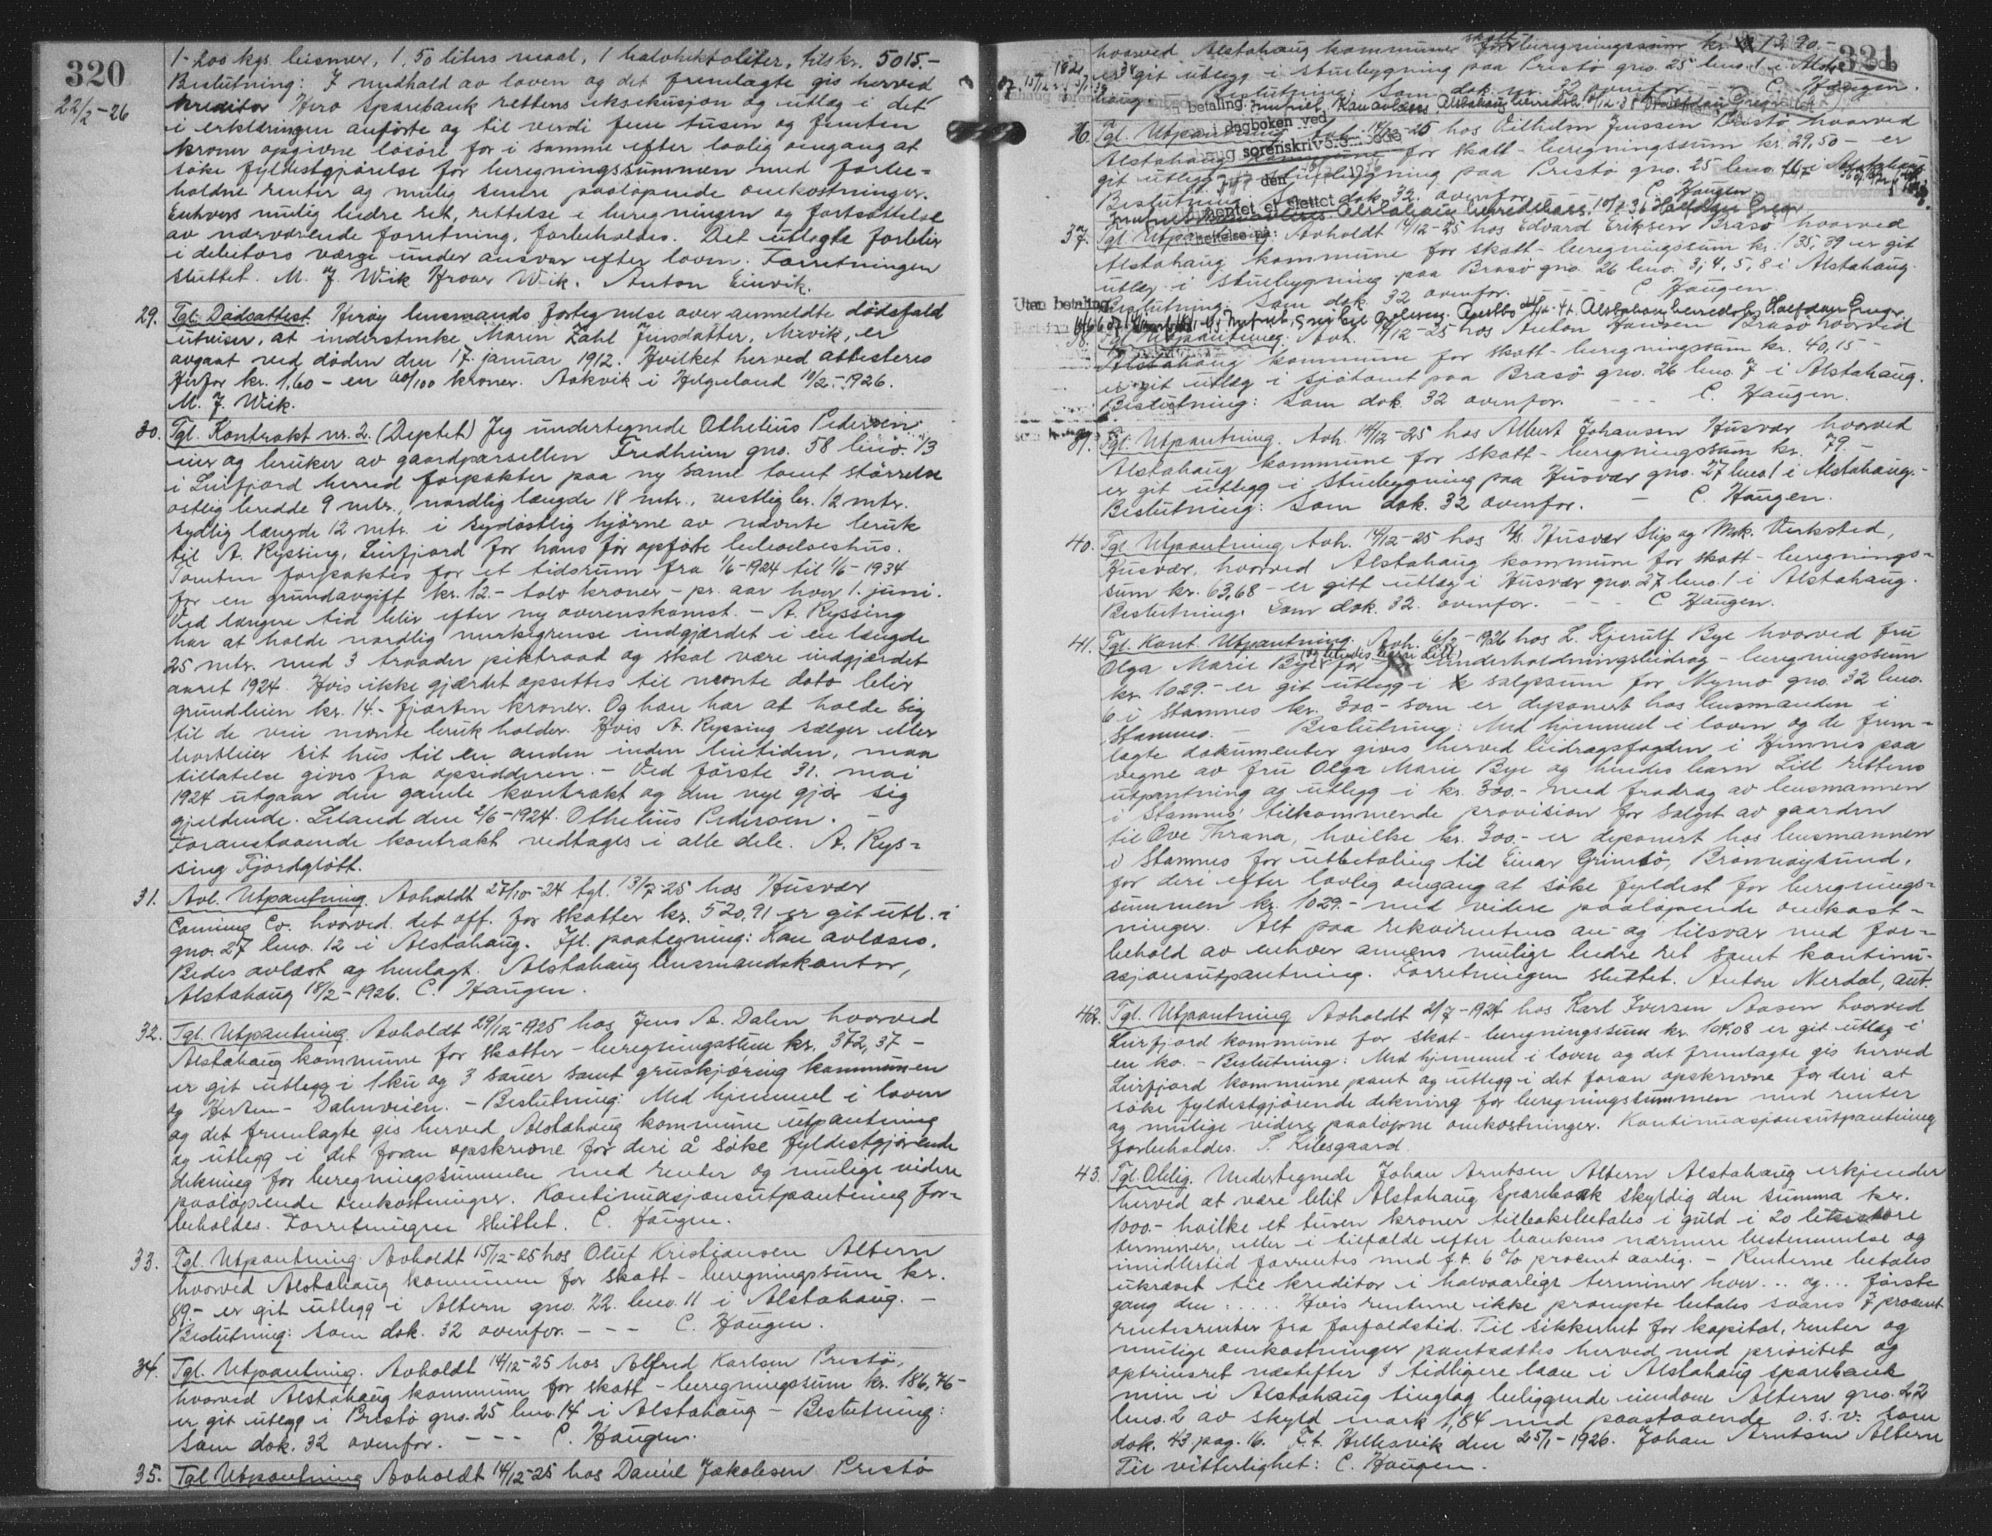 320
22/2-26
1- 200 kgs bismer, 1, 50 liters maal, 1 halvhektoliter, tils kr. 5015.-
Beslutning: I medhold av loven og det fremlagte gis herved
kreditor Herø Sparebank rettens eksekusjon og utlæg i det
i erklæringen anførte og til verdi fem tusen og femten
kroner opgivne løsøre for i samme efter lovlig omgang at
søke fyldestgjørelse for beregningssummen med forbe-
holdne renter og mulig senere paaløpende omkostninger.
Enhvers mulig bedre ret, rettelse i beregningen og fortsættelse
av nærværende forretning, forbeholdes. Det utlagte forblir
i debitors værge under ansvar efter loven. Forretningen
sluttet. M. J. Wik Hroar Wik. Anton Einvik.
29. Tgl. Dødsattest. Herøy lensmands fortegnelse over anmeldte dødsfald
utviser, at inderstenke Maren Zahl Jensdatter, Nævik, er
avgaat ved døden den 17. januar 1912. Hvilket herved attesteres
Herfor kr. 1,60 - en 60/100 kroner. Aakvik i Helgeland 10/2.-1926.
M. J. Wik.
30. Tgl. Kontrakt nr. 2. (Duptet) Jeg undertegnede Othelius Pedersen
eier og bruker av gaardparsellen Fredheim gno. 58 bno. 13
i Leirfjord herred forpakter paa ny samt tomt størrelse
østlig bredde 9 mtr., nordlig længde 18 mtr., vestlig br. 12 mtr.
sydlig længde 12 mtr. i sydøstlig hjørne av nævnte bruk
til A. Ryssing, Leirfjord for hans før opførte beboelseshus.
Tomten forpaktes for et tidsrum fra 1/6-1924 til 1/6-1934
for en grundavgift kr. 12.- tolv kroner - pr. aar hver 1. juni.
Ved længere tid blir efter ny overenskomst. - A. Ryssing
har at holde nordlig merkegrense indgjærdet i en længde
25 mtr. med 3 traader piktraad og skal være indgjærdet
aaret 1924. Hvis ikke gjærdet opsettes til nevnte dato blir
grundleien kr. 14.- fjorten kroner. Og han har at holde sig
til de vei nevnte bruk holder. Hvis A. Ryssing sælger eller
bortleier sit hus til en anden inden leietiden, maa
tillatelse gives fra opsidderen. - Ved første 31. mai
1924 utgaar den gamle kontrakt og den nye gjør sig
gjeldende. Leland den 2/6-1924. Othelius Pedersen. -
Foranstaaende kontrakt vedtages i alle dele. A. Rys-
sing Fjordgløtt.
31. Avl. Utpantning. Avholdt 27/10-24 tgl. 13/7-25 hos Husvær
Caning Co. hvorved det off. for skatter kr. 520,91 er git utl. i
gno. 27 bno. 12 i Alstahaug. Ifl. paategning: Kan avlæses.
Bedes avlæst og henlagt. Alstahaug lensmandskontor,
Alstahaug 18/2-1926. C. Haugen.
32. Tgl. Utpantning. Avholdt 29/12-1925 hos Jens A. Dalen hvorved
Alstahaug kommune for skatter - beregningssum kr. 372,37 -
er git utlegg i 1 ku og 3 sauer samt gruskjøring kommunen
og Herten - Dalenveien. - Beslutning: Med hjemmel i loven
og det fremlagte ges herved Alstahaug kommune utpantning
og utlegg i det foran opskrevne for deri å søke fyldestgjørende
dekning for beregningssummen med renter og mulige videre
paaløpende omkostninger. Kontinuasjonsutpantning for-
beholdes. Forretningen sluttet. C. Haugen.
33. Tgl. Utpantning. Avholdt 15/12-25 hos Oluf Kristjansen Altern
hvorved Alstahaug kommune for skatt - beregningssum kr.
89.- er git utlegg i Altern gno. 22. bno. 11 i Alstahaug. -
Beslutning: som dok. 32 ovenfor. - - - C. Haugen.
34. Tgl. Utpantning. Avholdt 14/12-25 hos Alfred Karlsen Prestø,
hvorved Alstahaug kommune for skatt - beregningssum kr. 186,76 -
er git utlegg i Prestø gno. 25 bno. 14 i Alstahaug - Beslutning:
som dok. 32 ovenfor. - - - C. Haugen.
35. Tgl. Utpantning Avholdt 14/12-25 hos Daniel Jakobsen Prestø
321
hvorved Alstahaug kommune for skatt beregningssum kr. 13,90 -
er git utlegg i stuebygning paa Prestø gno. 25 bno. 1 i Alsta-
haug. Beslutning: Som dok. nr. 32 ovenfor. - C. Haugen.
betaling.
i dagboken ved
sorenskriv
36. Tgl. Utpantning Avh. 14/12-25 hos Vilhelm Jenssen Prestø hvorved
Alstahaug kommune for skatt - beregningssum kr. 29,50 - er
git utlegg i stuebygning paa Prestø gno. 25 bno. i Alstahaug
Beslutning: Som dok. 32. ovenfor. C. Haugen.
mentet er slettet
37. Tgl. Utpantning. Avholdt 14/12-25 hos Edvard Eriksen Brasø hvorved
Alstahaug kommune for skatt - beregningssum kr. 135,39 er git
utlæg i stuebygning paa Brasø gno. 26 bno. 3, 4, 5, 8 i Alstahaug.
Beslutning: Som dok. 32 ovenfor. - - - C. Haugen.
Uten betaling
38. Tgl. Utpantning. Avh. 14/12-25 hos Anton Hansen Brasø hvorved
Alstahaug kommune for skatt - beregningssum kr. 40,15 -
er git utlæg i sjøtomt paa Brasø gno. 26 bno. 7 i Alstahaug.
Beslutning: Som dok. 32 ovenfor. - - - C. Haugen.
39. Tgl. Utpantning. Avh. 14/12-25 hos Albert Johansen Husvær hvorved
Alstahaug kommune for skatt - beregningssum kr. 79.-
er git utlegg i stuebygning paa Husvær gno. 27 bno. 1 i Alstahaug.-
Beslutning: Som dok. 32 ovenfor. - C. Haugen.
40. Tgl. Utpantning. Avh. 14/12-25 hos A/s. Husvær Slip og Mek. Verksted,
Husvær, hvorved Alstahaug kommune for skatt - beregnings-
sum kr. 63,68 - er gitt utlæg i Husvær gno. 27 bno. 1 i Alstahaug.
Beslutning: Som dok. 32. ovenfor. - - - C. Haugen.
41. Tgl. Kont Utpantning. Avh. 6/2-1926 hos L. Kjerulf Bye hvorved fru
Olga Marie Bye (og hendes barn Lill) for underholdningsbidrag - beregningssum
kr. 1029.- er git utlegg i salgssum for Nymo gno. 32 bno.
6 i Stamnes kr. 300.- som er deponert hos lensmanden i
Stamnes. - Beslutning: Med hjemmel i loven og de frem-
lagte dokumenter gives herved bidragsfogden i Hemnes paa
vegne av fru Olga Marie Bye og hendes barn Lill rettens
utpantning og utlegg i kr. 300.- med fradrag av lensmannen
i Stamnes' tilkommende provision for salget av gaarden
til Ove Thrana, hvilke kr. 300,- er deponert hos lensmannen
i Stamnes for utbetaling til Einar Grimsø, Brønnøysund,
for deri efter lovlig omgang at søke fyldest for beregnings-
summen kr. 1029.- med videre paaløpende omkost-
ninger. Alt paa rekvirentens an- og tilsvar med for-
behold av enhver annens mulige bedre ret samt kontinu-
asjonsutpantning. Forretningen sluttet. Anton Nerdal, aut.
42. Tgl. Utpantning Avholdt 2/7-1924 hos Karl Iversen Aasen hvorved
Leirfjord kommune for skat - beregningssum kr. 104.08 er git utlæg i
en ko. - Beslutning: Med hjemmel i loven og det fremlagte gis herved
Leirfjord kommune pant og utlegg i det foran opskrevne for deri at
søke fyldestgjørende dekning for beregningssummen med renter
og mulige videre paaløpne omkostninger. Kontinuasjonsutpantning
forbeholdes. S. Kilesgaard.
43. Tgl. Oblig. Undertegnede Johan Arntsen Altern Alstahaug erkjender
herved at være blit Alstahaug Sparebank skyldig den summa kr.
1000.- hvilke et tusen kroner tilbakebetales i guld i 20 like store
terminer, eller i tilfælde efter bankens nærmere bestemmelse og
imidlertid forrentes med f.t. 6 % procent aarlig. - Renterne betales
ukrævet til kreditor i halvaarlige terminer hver ... og ... første
gang den ..... Hvis renterne ikke prompte betales svares 7 procent
rentesrenter fra forfaldstid. Til sikkerhet for kapital, renter og
mulige omkostninger pantsættes herved med prioritet og
optrinsret næstefter 3 tidligere laan i Alstahaug sparebank
min i Alstahaug tinglag beliggende eiendom Altern gno. 22
bno. 2 av skyld mark 1,84 med paastaaende o.s.v. som
dok. 43 pag. 16. F.t. Hellesvik den 25/1-1926. Johan Arntsen Altern
Til vitterlighet: C. Haugen.